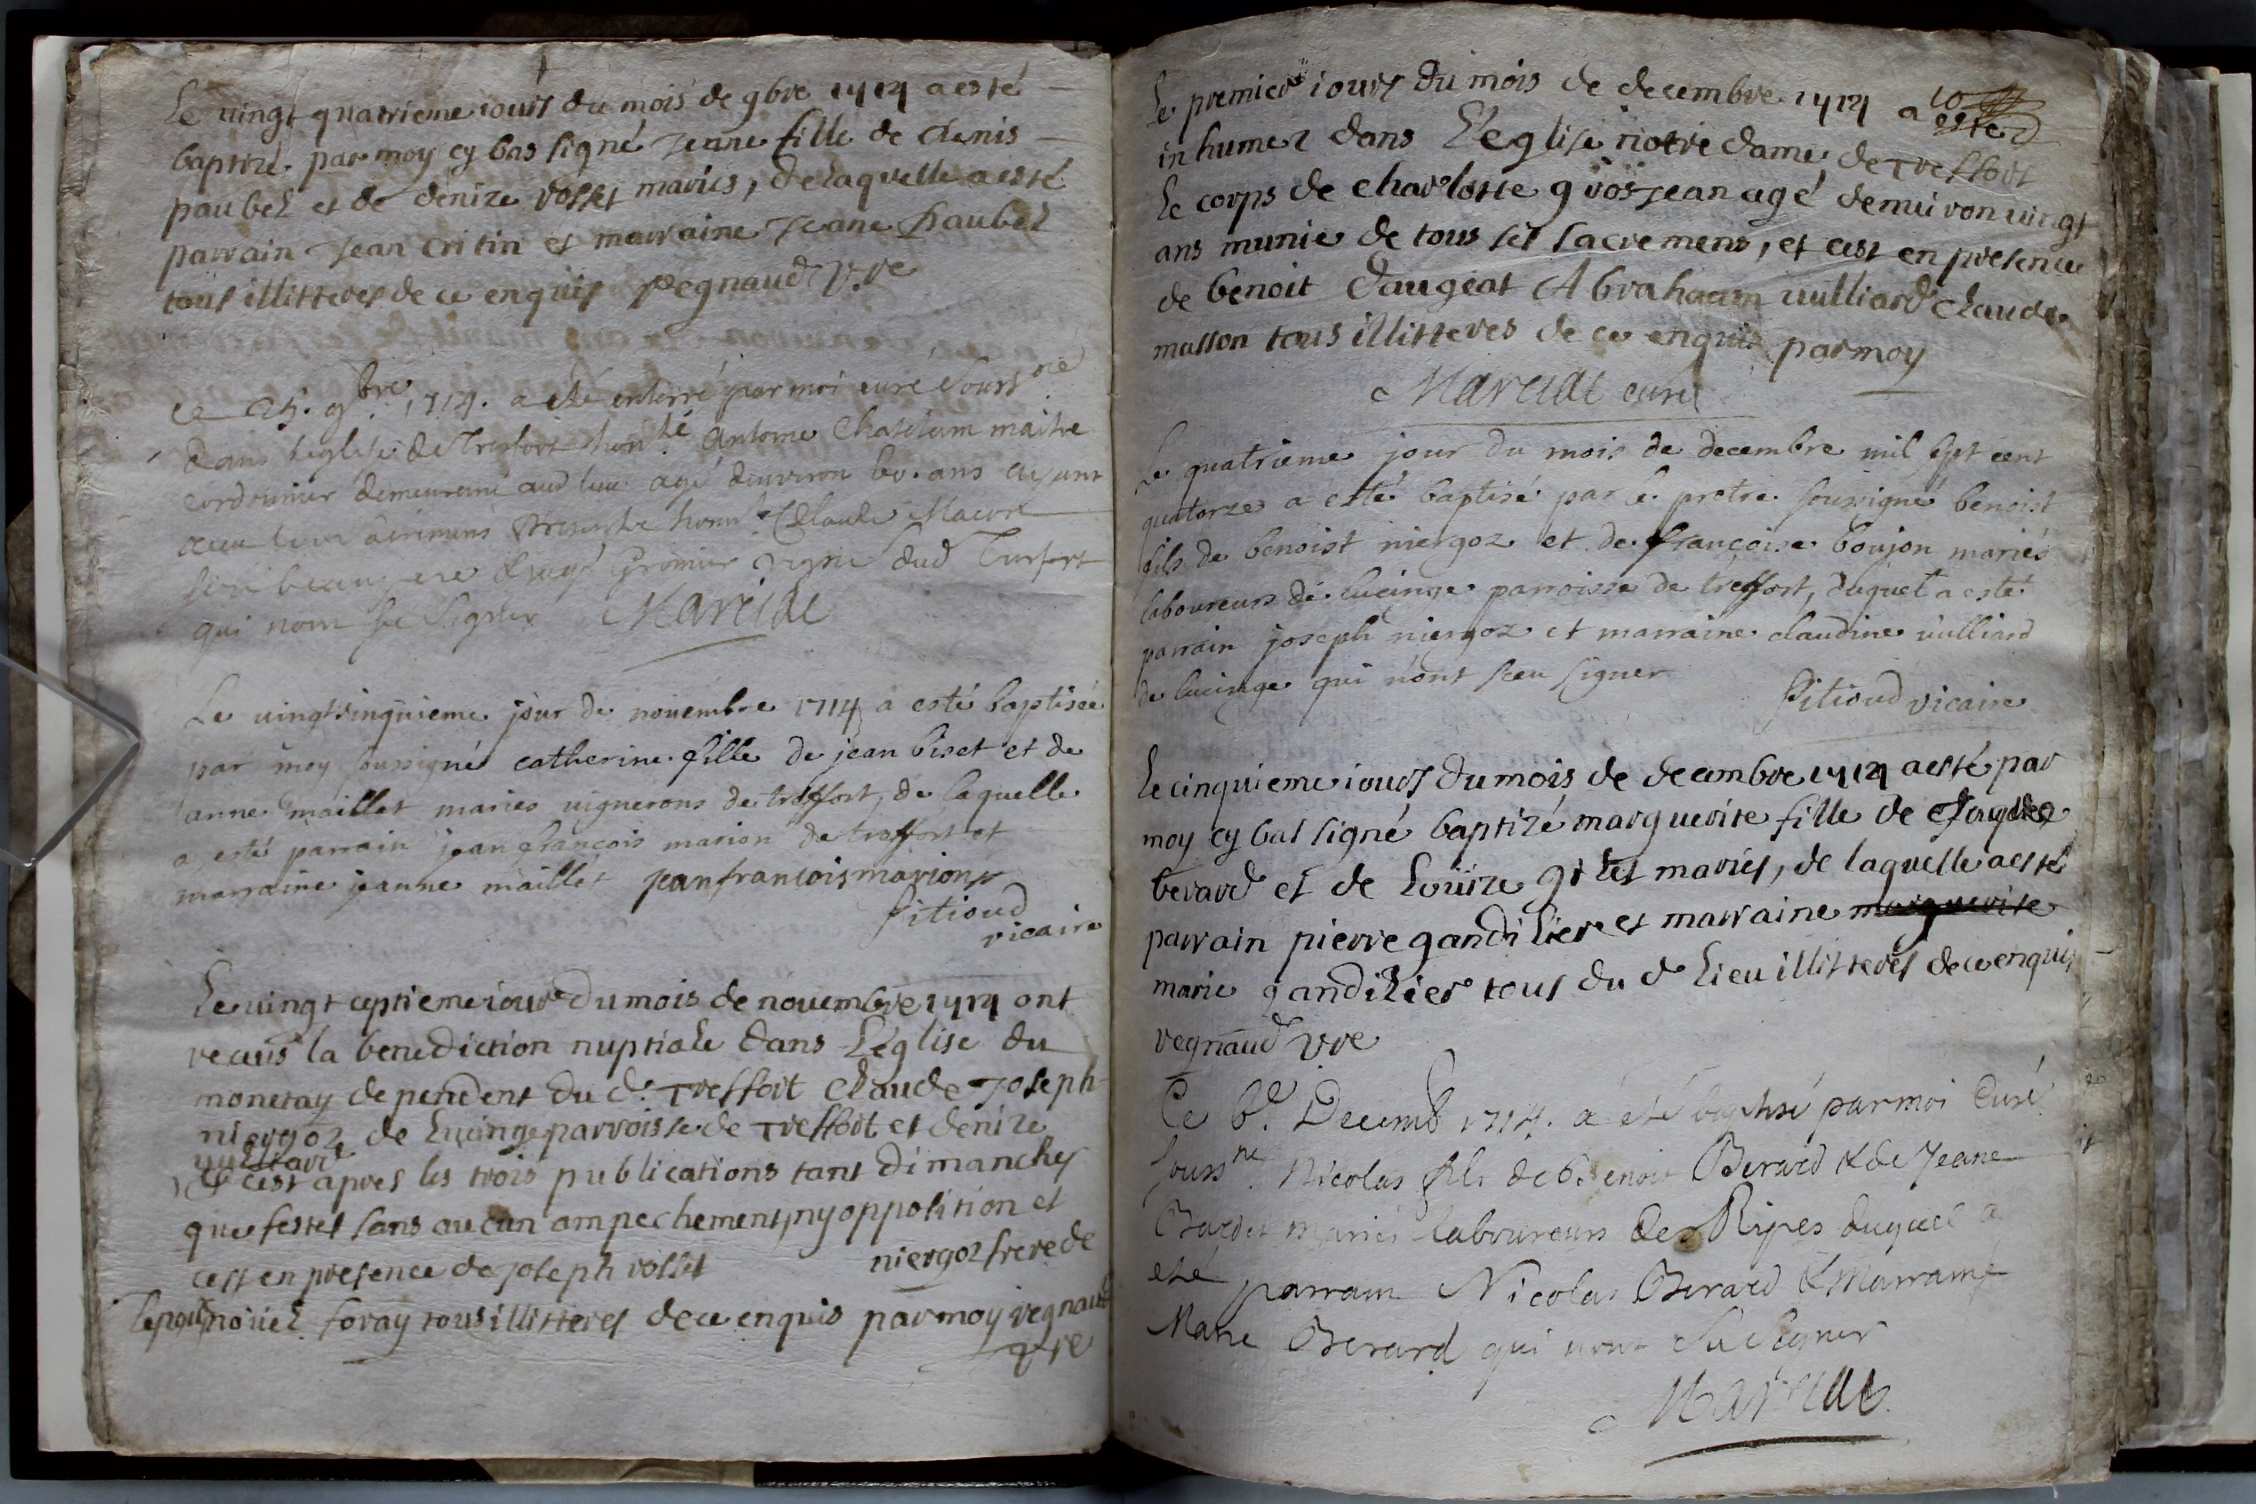 Le vingt quatrieme iours du mois de 9bre 1714 a esté
baptizé par moy cy bas signé Jenne fille de denis
paubel et de denize rosset mariés, de laquelle a esté
parrain Jean critin et marraine Jeane paubel
tous illitteres de ce enquis regnaud vre
Ce 25. 9bre 1714. a été enterré par moi curé souss.né
dans l'eglise de Treffort hon.le Antoine Chatelam maitre
cordonnier demeurant aud lieu agé denviron 60. ans
Claude
son beau pere
qui nont su signer Mareidal
Le vingtcinquieme jour de novembre 1714 a esté baptisée
par moy soussigné catherine fille de jean biset et de
anne maillet mariés vignerons de treffort, de laquelle
a esté parrain jean francois marion de treffort et
marraine jeanne maillet jeanfrancoismarion
pitioud
vicaire
Le vingt ceptieme iour du mois de novembre 1714 ont
receus la benediction nuptiale dans L'eglise du
monetay dependent du d. Treffort claude Joseph
niergoz de Lucinge parroisse de Treffort et denize
vulliard
et cest apres les trois publications tant dimanches
que festes sans aucun ampechement ny oppolition et
cest en presence de joseph rosset niergoz frere de
lepous noüel foray tous illitteres de ce enquis par moy regnaud
vre
Le premier iours du mois de decembre 1714 a esté
inhumer dans L'eglise notre dame de Treffort
Le corps de charlotte grosjean agé denuiron vingt
ans munie de tous ses sacremens, et cest en presence
de benoit daugeat Abrahaam vulliard claude
musson tous illitteres de ce enquis par moy
Mareidal curé
Le quatrieme jour du mois de decembre mil sept cent
quatorze a esté baptisé par le pretre soussigné benoist
fils de benoist niergoz et de françoise boujon mariés
laboureurs de lucinge parroisse de treffort, duquel a esté
parrain joseph niergoz et marraine claudine vulliard
de lucinge qui n'ont sceu signer
pitioud vicaire
Le cinquieme iours du mois de decembre 1714 a esté par
moy cy bas signé baptizé marguerite fille de
berard et de Loüize mariés, de laquelle a esté
parrain pierre gandilier et marraine marguerite
marie gandilier tous du d lieu illitteres de ce enquis
regnaud vre
Ce 6e. Decemb 1714. a été baptisé par moi Curé
souss.né Nicolas fils de Benoit Berard & de Jeane
mariés laboureurs des Ripes duquel a
eté parrain Nicolas Berard & Marraine
Marie Berard qui nont su signer
Mareidal